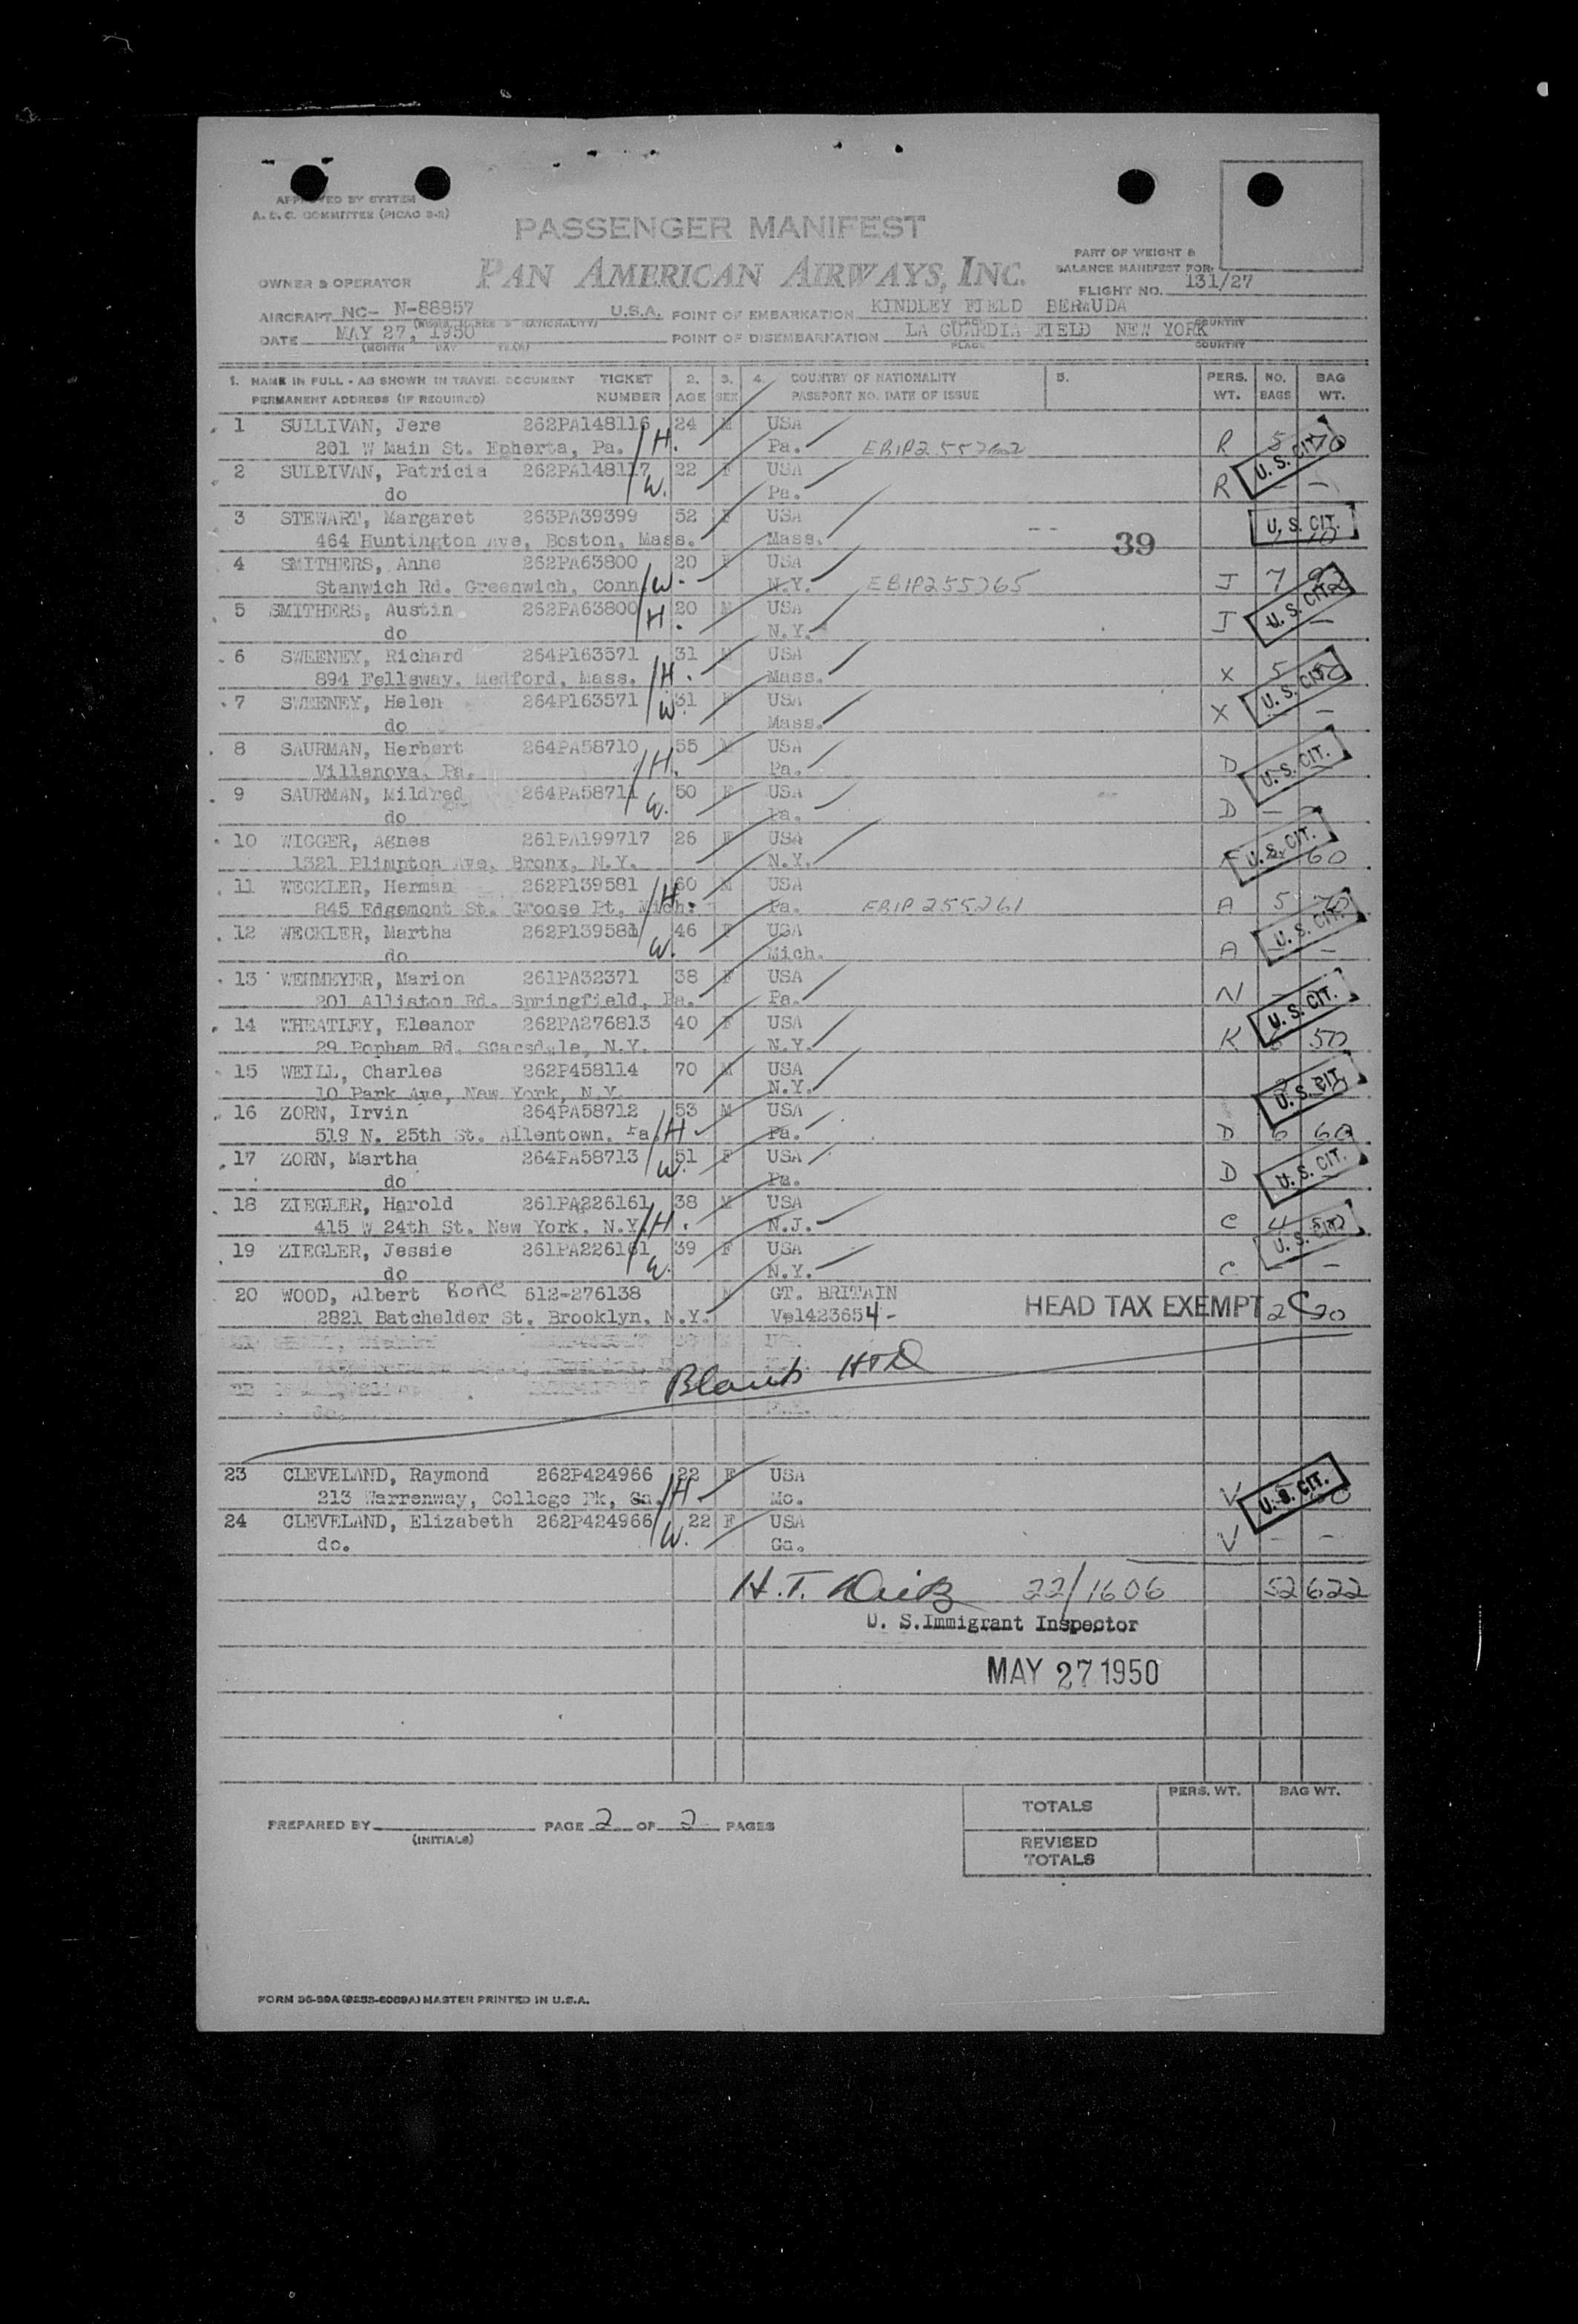 APPROVED BY SYSTEM
A. L. C. COMMITTEE (PICAO 3-2)
PASSENGER MANIFEST
PAN AMERICAN AIRWAYS, INC.
PART OF WEIGHT &
BALANCE MANIFEST FOR
OWNER & OPERATOR
FLIGHT NO. 131/27
AIRCRAFT NC- N-88857 U.S.A. POINT OF EMBARKATION KINDLEY FIELD BERMUDA
DATE MAY 27, 1950 POINT OF DISEMBARKATION LA GUARDIA FIELD NEW YORK
(MONTH DAY YEAR) PLACE COUNTRY
1. NAME IN FULL - AS SHOWN IN TRAVEL DOCUMENT TICKET 2. 3. 4. COUNTRY OF NATIONALITY 5. PERS. NO. BAG
PERMANENT ADDRESS (IF REQUIRED) NUMBER AGE SEX PASSPORT NO. DATE OF ISSUE WT. BAGS WT.
1 SULLIVAN, Jere 262PA148116 24 M USA
201 W Main St. Epherta, Pa. H. Pa. R 5 70
2 SULLIVAN, Patricia 262PA148117 22 F USA U. S. CIT.
do W. Pa. R - -
3 STEWART, Margaret 263PA39399 52 F USA U. S. CIT.
464 Huntington Ave, Boston, Mass. Mass. 39
4 SMITHERS, Anne 262PA63800 20 F USA
Stanwich Rd. Greenwich, Conn W. N.Y. EBIP255265 J 7 92
5 SMITHERS, Austin 262PA63800 20 M USA U. S. CIT.
do H. N.Y. J -
6 SWEENEY, Richard 264P163571 31 M USA
894 Fellsway, Medford, Mass. H. Mass. X 5 50
7 SWEENEY, Helen 264P163571 31 F USA U. S. CIT.
do W. Mass. X -
8 SAURMAN, Herbert 264PA58710 55 M USA
Villanova, Pa. H. Pa. D U. S. CIT.
9 SAURMAN, Mildred 264PA58711 50 F USA
do W. Pa. D - -
10 WIGGER, Agnes 261PA199717 26 F USA U. S. CIT.
1321 Plimpton Ave, Bronx, N.Y. N.Y. F 60
11 WECKLER, Herman 262P139581 60 M USA
845 Edgemont St. Groose Pt, Mich. H Pa. EBIP 255261 A 5 70
12 WECKLER, Martha 262P139581 46 F USA U. S. CIT.
do W. Mich. A -
13 WEHMEYER, Marion 261PA32371 38 F USA
201 Alliston Rd. Springfield, Pa. Pa. N U. S. CIT.
14 WHEATLEY, Eleanor 262PA276813 40 F USA
29 Popham Rd. Scarsdale, N.Y. N.Y. K 50
15 WEILL, Charles 262P458114 70 M USA
10 Park Ave, New York, N.Y. N.Y. U. S. CIT.
16 ZORN, Irvin 264PA58712 53 M USA
519 N. 25th St. Allentown, Pa. H Pa. D 6 60
17 ZORN, Martha 264PA58713 51 F USA U. S. CIT.
do W. Pa. D
18 ZIEGLER, Harold 261PA226161 38 M USA
415 W 24th St. New York, N.Y. H. N.J. C 4 50
19 ZIEGLER, Jessie 261PA226161 39 F USA U. S. CIT.
do W. N.Y. C - -
20 WOOD, Albert 612-276138 M GT. BRITAIN
2821 Batchelder St. Brooklyn, N.Y. V#1423654 - HEAD TAX EXEMPT 2 30
Blank HTD
23 CLEVELAND, Raymond 262P424966 22 F USA
213 Warrenway, College Pk, Ga. H Mo. V U. S. CIT.
24 CLEVELAND, Elizabeth 262P424966 22 F USA
do. W. Ga. V - -
H. T. 22/1606 52 622
U. S. Immigrant Inspector
MAY 27 1950
PERS. WT. BAG WT.
TOTALS
PREPARED BY PAGE 2 OF 2 PAGES
(INITIALS)
REVISED
TOTALS
FORM 36-89A (9253-6089A) MASTER PRINTED IN U.S.A.